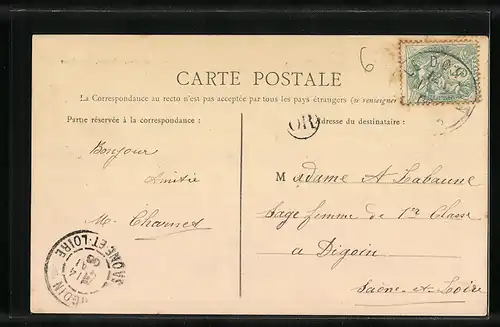 6
CARTE POSTALE
La Correspondance au recto n'est pas acceptée par tous les pays étrangers (se renseigner
Partie réservée à la correspondance :
Adresse du destinataire :
OR
Bonjour
Amitié
M. Charnet
Madame A Labaune
Sage femme de 1re Classe
a Digoin
Saône-et-Loire
DIGOIN
SAONE-ET-LOIRE